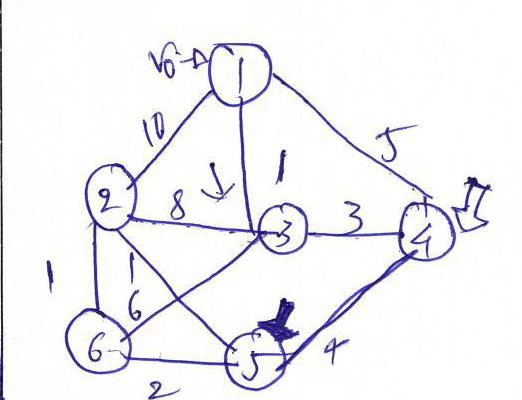 V0→
1
10
5
2
8
↓
1
3
3
4
1
1
6
6
5
4
2